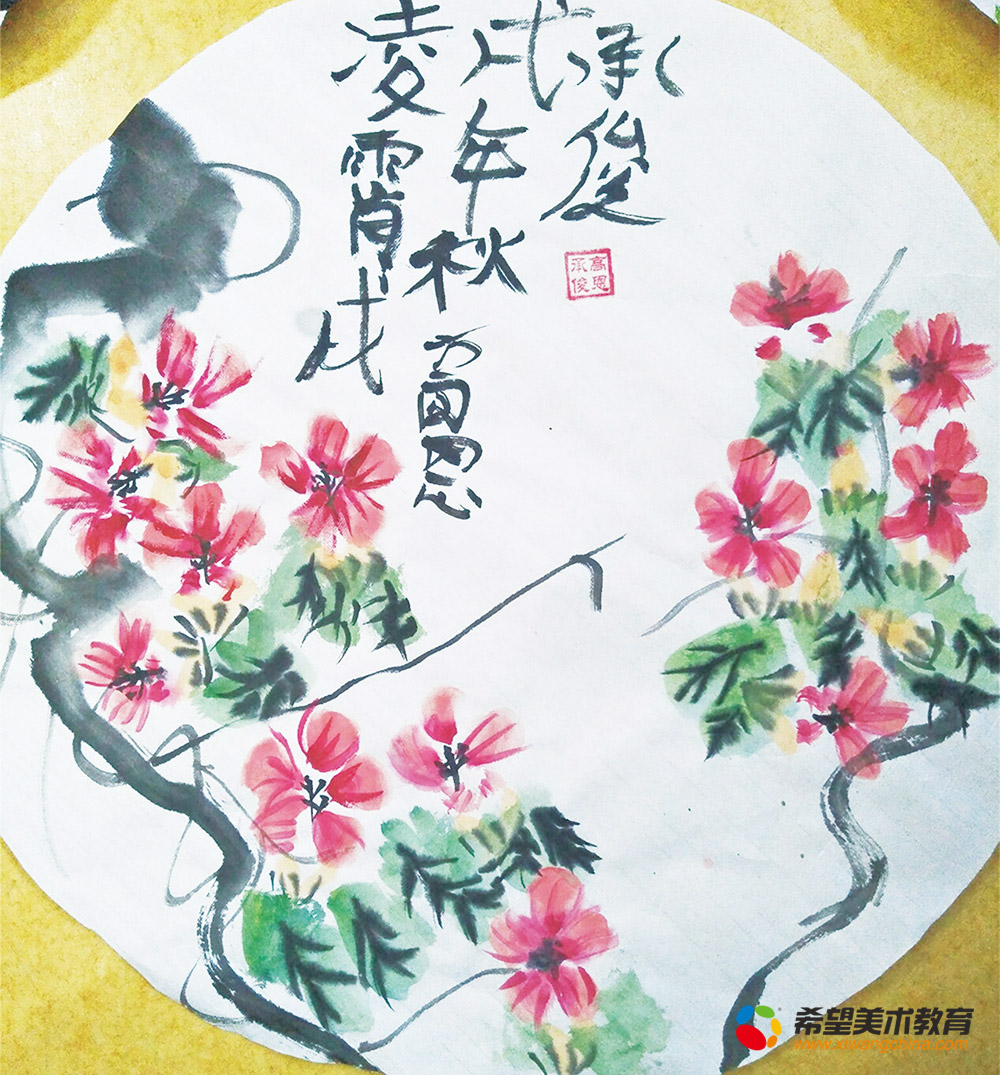 凌霄戊
戌年秋高恩
承俊
高恩
承俊
希望美术教育
www.xiwangchina.com